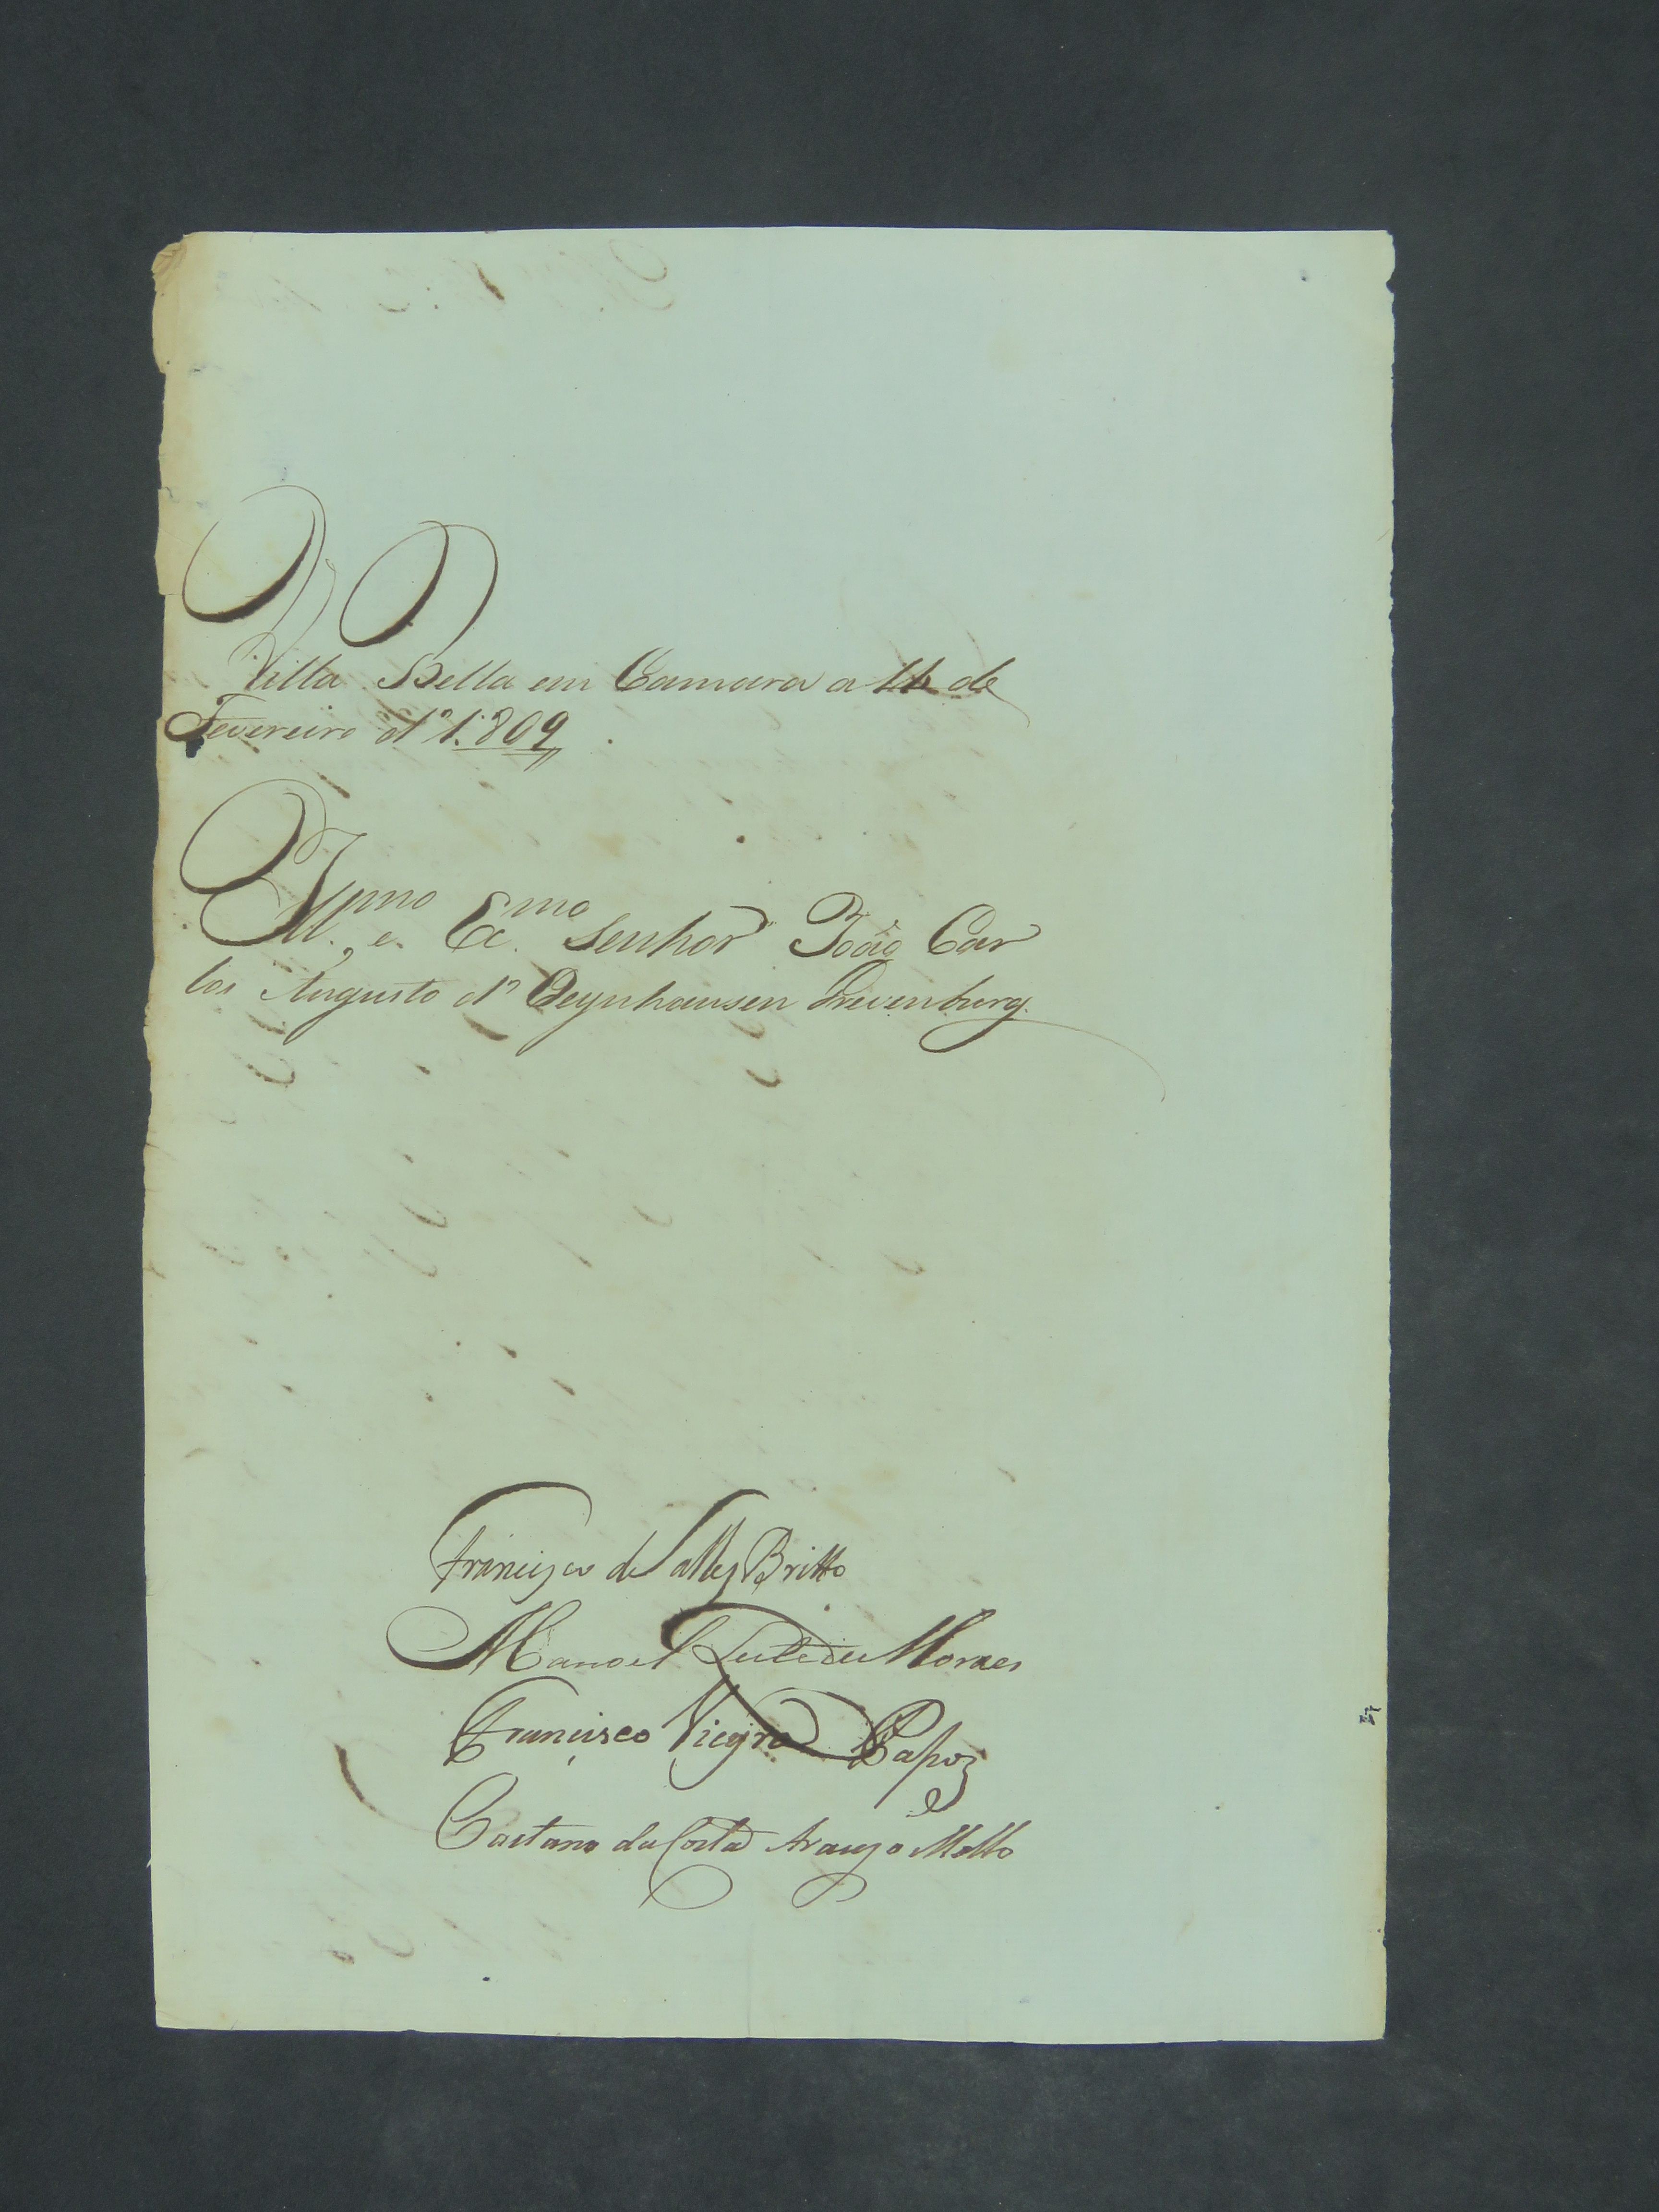 Villa Bella em Camara a 16 de
Fevereiro d' 1.809
Ill.mo e Ex.mo Senhor João Car
los Augusto d' Oeynhausen Grevenburg.
Francisco de Salles Britto
Manoel Leite de Moraes
Francisco Vieyra Capoz
Caetano da Costa Araujo Mello